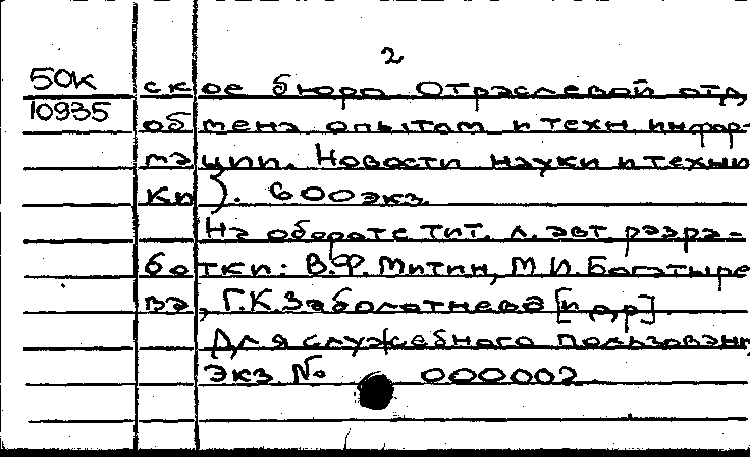 2
50к ское бюро. Отраслевой отд.
10935 обмена опытом и техн. инфор-
мации. Новости науки и техни
ки). 600 экз.
На обороте тит. л. авт разра-
ботки: В.Ф. Митин, М.И. Богатыре
ва, Г.К. Заболотнева [и др].
Для служебного пользовани
Экз. № 000002.